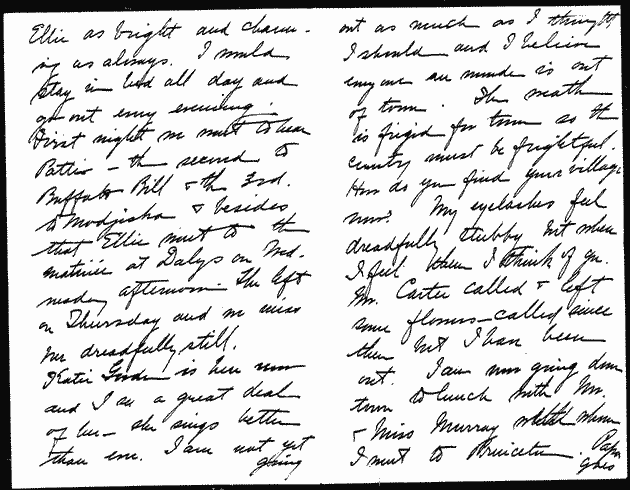 Ellie as bright and charm-
ing as always. I would
stay in bed all day and
go out every evening.
First night we went to hear
Patti — the second to
Buffalo Bill & the 3rd.
to Modjeska & besides
that Ellie went to the
matinée at Dalys on Wed-
nesday afternoon She left
on Thursday and we miss
her dreadfully still.
Katie is here now
and I see a great deal
of her — she sings better
than ever. I am not yet
going
out as much as I thought
I should and I believe
everyone we is out
of town. The weather
is frigid for town so the
country must be frightful.
How do you find your village
now? My eyelashes feel
dreadfully stubby but when
I feel them I think of you.
Mr. Carter called & left
some flowers — called since
then but I have been
out. I am now going down
town to lunch with Mr.
& Miss Murray with whom
I went to Princeton. Papa
goes